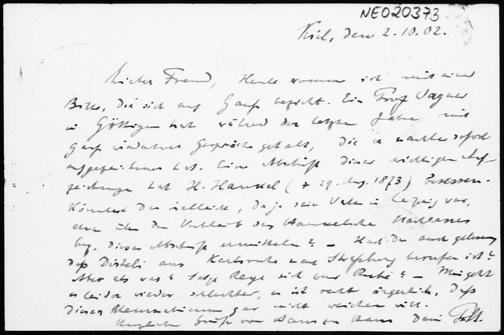 NEO20373
Kiel, den 2.10.02.
Lieber Freund, Heute komme ich mit einer
Bitte, die sich auf Gauß bezieht. Ein Prof. Wagner
in Göttingen hat während der letzten Jahre mit
Gauß Gespräche gehabt, die er nachher sofort
aufgezeichnet hat. Eine Abschrift dieser wichtigen Auf-
zeichnungen hat H. Hankel († 29. Aug. 1873) besessen.
Könntest du vielleicht, da ja sein Vater in Leipzig war,
etwas über den Verbleib des Hankelschen Nachlasses
bez. dieser Abschrift ermitteln? – Hast du auch gelesen,
daß Disteli aus Karlsruhe nach Straßburg berufen ist?
Aber als was? Reye sich zur Ruhe? – Mir geht
es leider wieder schlechter, es ist recht ärgerlich, daß
dieser Rheumatismus gar nicht weichen will.
Herzliche Grüße von Haus zu Haus Dein